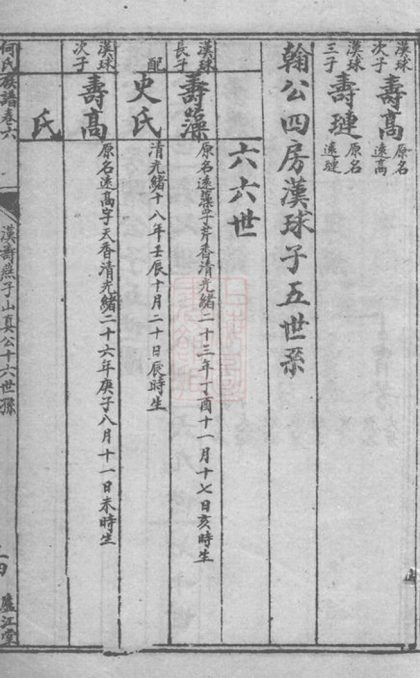 漢球次子 壽高 原名遠高
漢球三子 壽璉 原名遠璉
翰公四房漢球子五世系
六六世
漢球長子 壽藻 原名遠藻字芹香清光緒二十三年丁酉十一月十七日亥時生
配 史氏 清光緒十八年壬辰十月二十日辰時生
漢球次子 壽高 原名遠高字天香清光緒二十六年庚子八月十一日未時生
氏
何氏族譜卷六
漢壽燕子山真公十六世孫
廬江堂